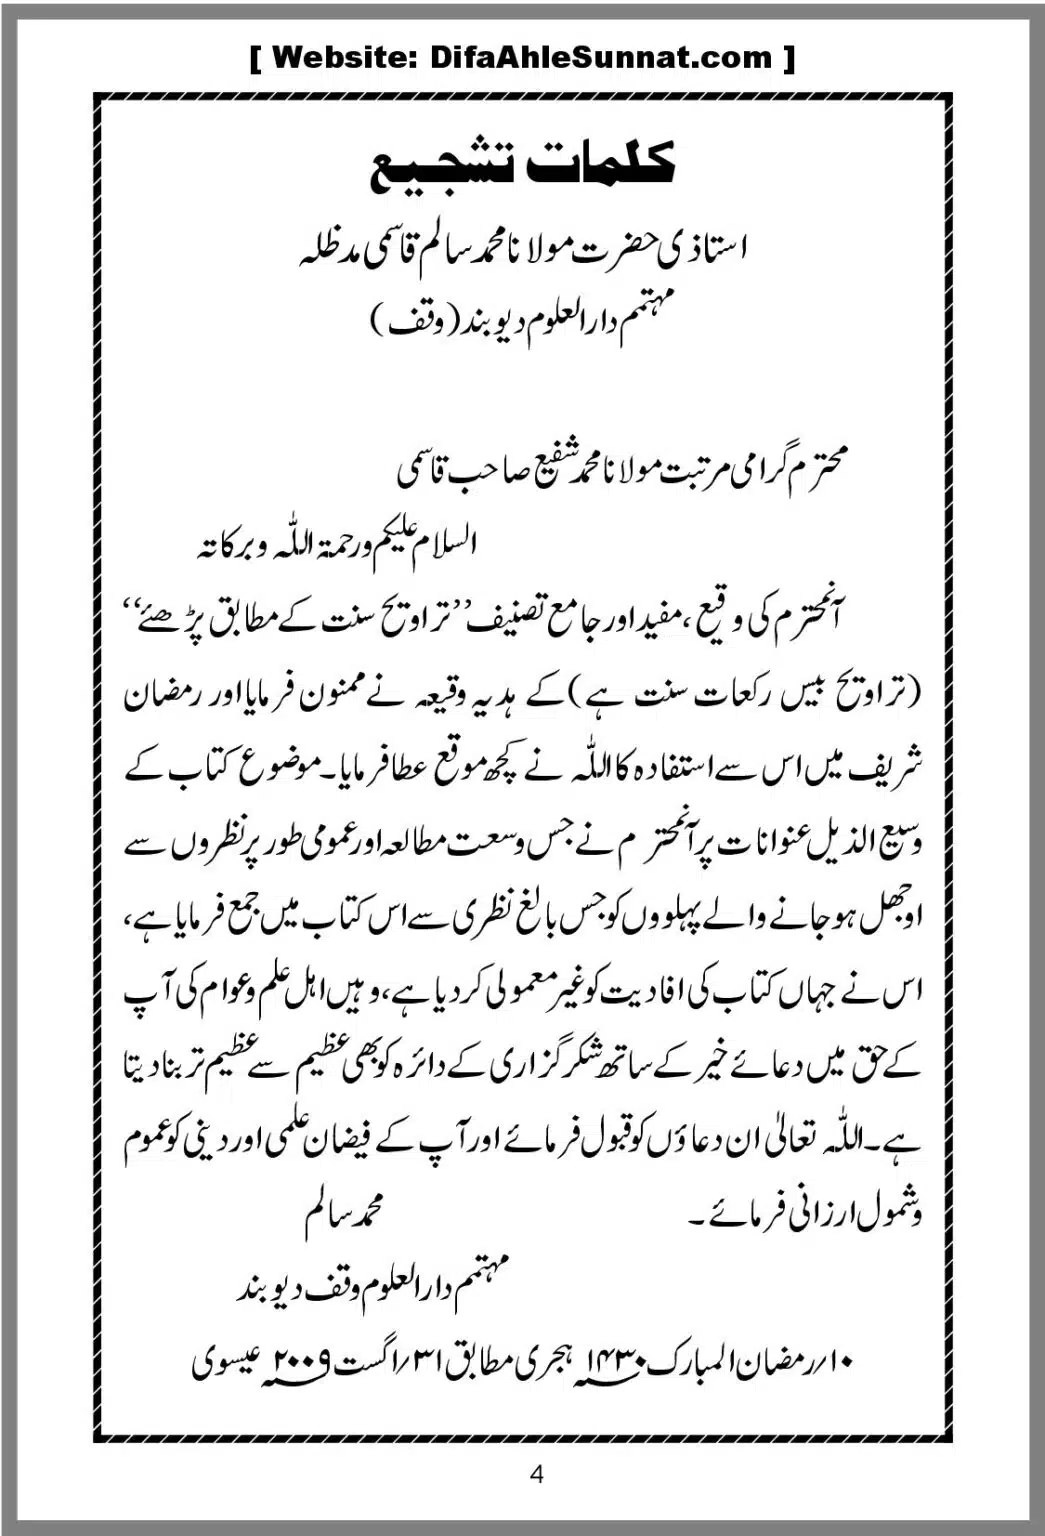 [ Website: DifaAhleSunnat.com ]
کلمات تشجیع
استاذی حضرت مولانا محمد سالم قاسمی مدظلہ
مہتمم دارالعلوم دیوبند (وقف)
محترم گرامی مرتبت مولانا محمد شفیع صاحب قاسمی
السلام علیکم ورحمۃ اللہ وبرکاتہ
آنمحترم کی وقیع، مفید اور جامع تصنیف ’’تراویح سنت کے مطابق پڑھئے‘‘
(تراویح بیس رکعات سنت ہے) کے ہدیہ وقیعہ نے ممنون فرمایا اور رمضان
شریف میں اس سے استفادہ کا اللہ نے کچھ موقع عطا فرمایا۔ موضوع کتاب کے
وسیع الذیل عنوانات پر آنمحترم نے جس وسعت مطالعہ اور عمومی طور پر نظروں سے
اوجھل ہو جانے والے پہلووں کو جس بالغ نظری سے اس کتاب میں جمع فرمایا ہے،
اس نے جہاں کتاب کی افادیت کو غیر معمولی کر دیا ہے، وہیں اہل علم وعوام کی آپ
کے حق میں دعائے خیر کے ساتھ شکر گزاری کے دائرہ کو بھی عظیم سے عظیم تر بنا دیتا
ہے۔ اللہ تعالیٰ ان دعاؤں کو قبول فرمائے اور آپ کے فیضان علمی اور دینی کو عموم
وشمول ارزانی فرمائے۔ محمد سالم
مہتمم دارالعلوم وقف دیوبند
۱۰/رمضان المبارک ۱۴۳۰؁ ہجری مطابق ۳۱/اگست ۲۰۰۹؁ عیسوی
4